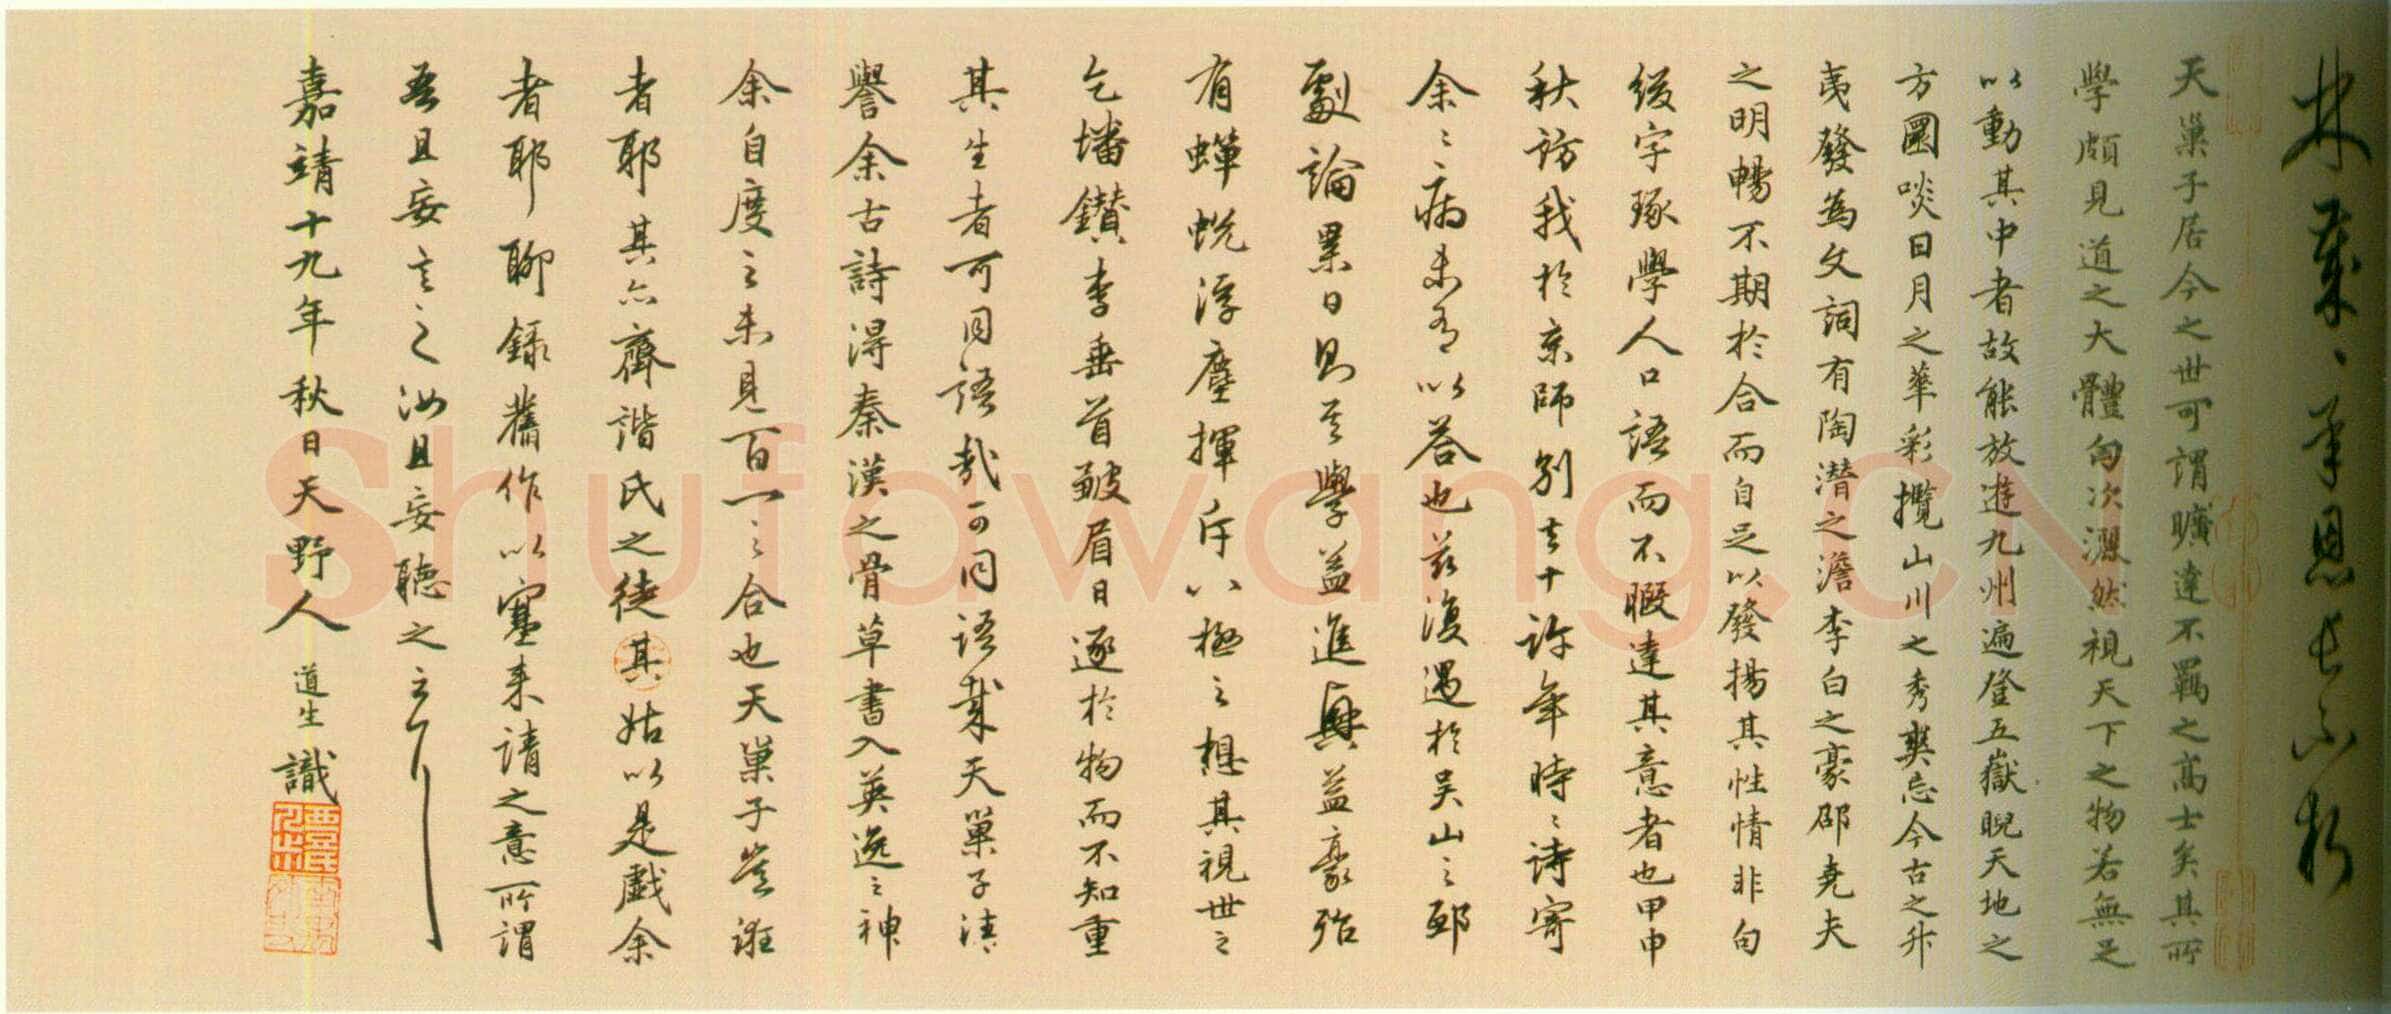 天巢子居今之世可謂曠達不羈之高士矣其所
學頗見道之大體匈次灑然視天下之物若無足
以動其中者故能放遊九州遍登五嶽睨天地之
方圓啖日月之華彩攬山川之秀爽忘今古之升
夷發為文詞有陶潛之澹李白之豪邵堯夫
之明暢不期於合而自足以發揚其性情非句
綴字琢學人口語而不暇達其意者也甲申
秋訪我於京師別去十許年時〻詩寄
余〻病未有以答也茲復遇於吳山之邸
劇論累日則其學益進興益豪殆
有蟬蛻浮塵揮斥八極之想其視世之
乞墦鑽李垂首皺眉日逐於物而不知重
其生者可同語哉可同語哉天巢子讀
譽余古詩得秦漢之骨草書入英逸之神
余自度之未見百一之合也天巢子豈誑
者耶其亦齊諧氏之徒其姑以是戲余
者耶聊錄舊作以塞来請之意所謂
吾且妄言之汝且妄聽之云爾
嘉靖十九年秋日天野人道生識
Shufawang.CN